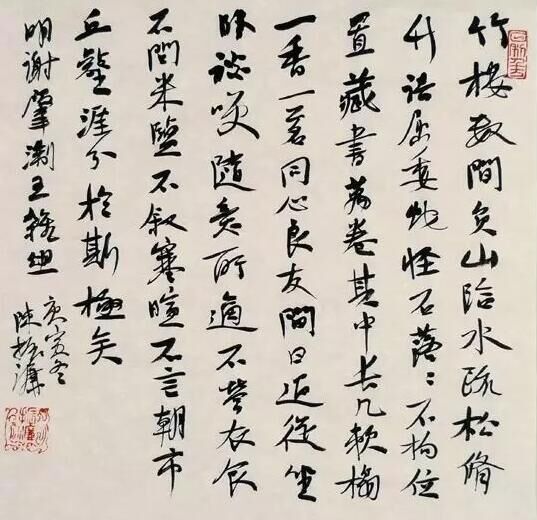 竹楼数間负山临水疏松脩
竹诘屈委蛇怪石落〻不拘位
置藏書萬卷其中长几软榻
一香一茗同心良友間日过從坐
卧谈笑隨意所適不營衣食
不问米鹽不叙寒暄不言朝市
丘壑涯分於斯極矣
明谢肇淛五雜俎
庚寅冬
陈振濂